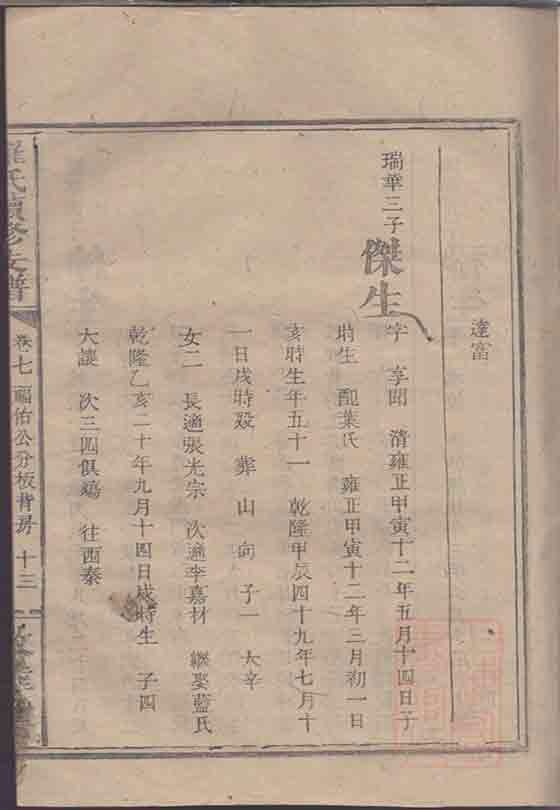 達富
瑞華三子
傑生
字 享聞 清雍正甲寅十二年五月十四日子
時生 配葉氏 雍正甲寅十二年三月初一日
亥時生年五十一 乾隆甲辰四十九年七月十
一日戌時歿 葬 山 向 子一 大辛
女二 長適張光宗 次適李嘉材 繼娶藍氏
乾隆乙亥二十年九月十四日戌時生 子四
大讓 次三四俱殤 往西秦
氏續修支譜
卷七 福佑公分板背房 十三